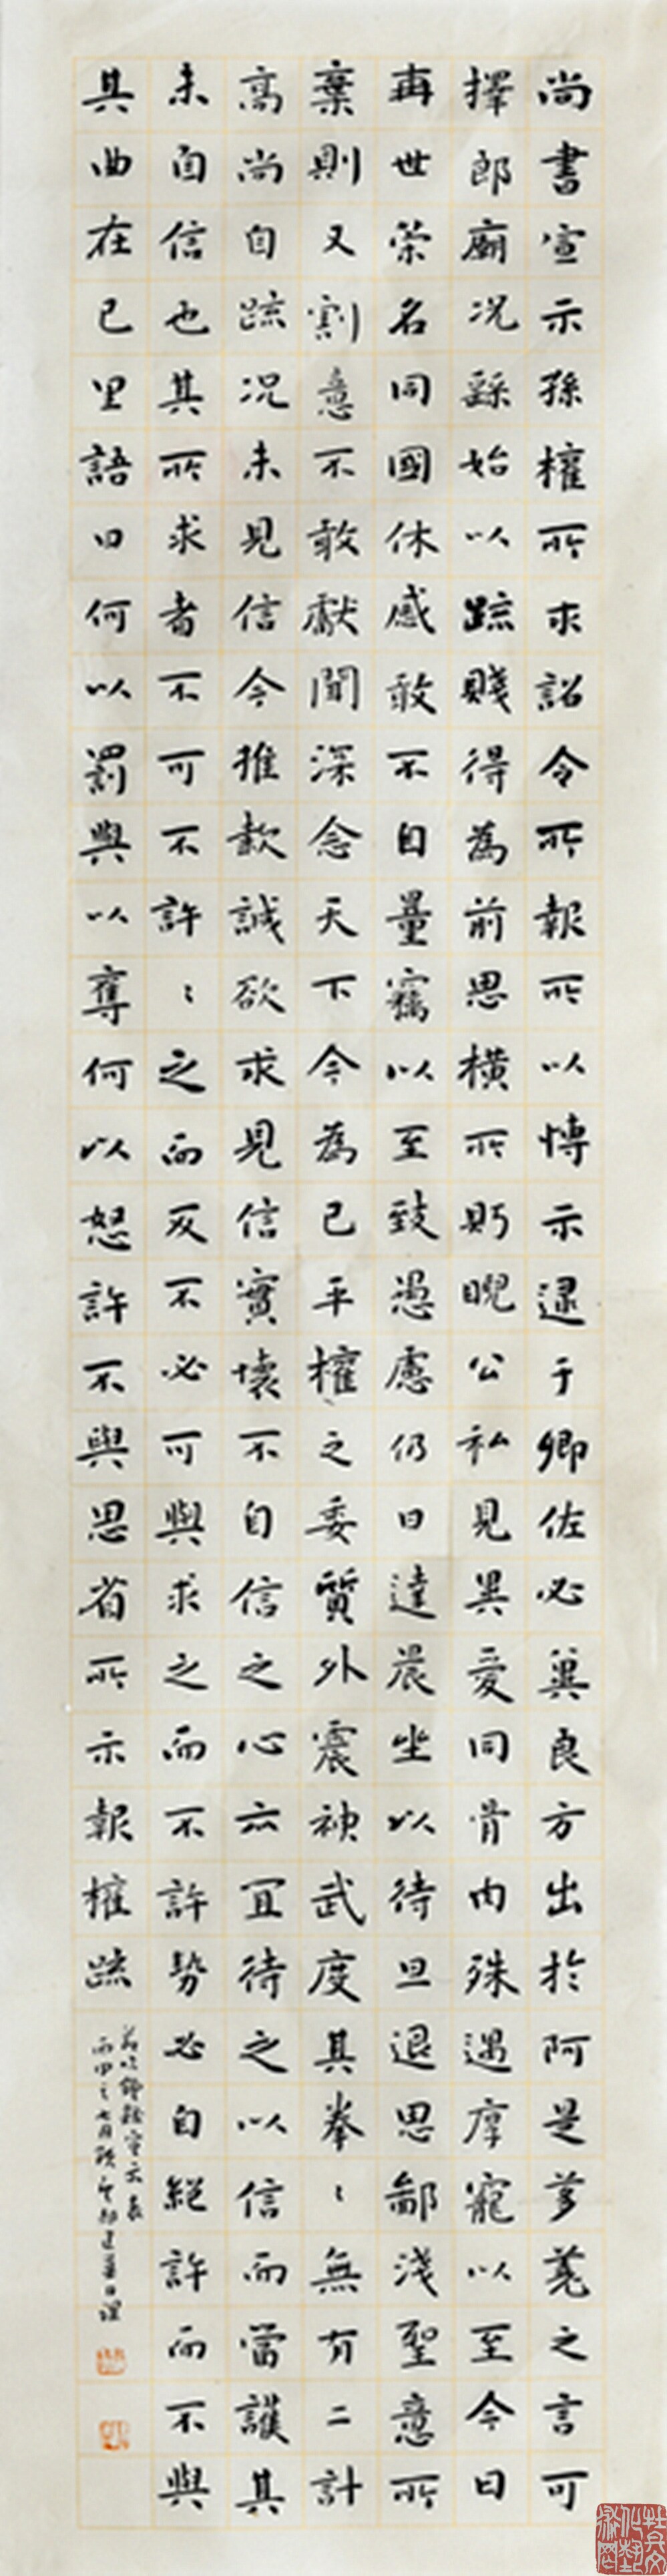 尚書宣示孫權所求詔令所報所以博示逮于卿佐必冀良方出於阿是芻蕘之言可
擇郎廟況繇始以疏賤得為前恩橫所眄睨公私見異愛同骨肉殊遇厚寵以至今日
再世榮名同國休慼敢不自量竊以至致愚慮仍日達晨坐以待旦退思鄙淺聖意所
棄則又割意不敢獻聞深念天下今為已平權之委質外震神武度其拳〻無有二計
高尚自疏況未見信今推款誠欲求見信實壞不自信之心亦宜待之以信而當護其
未自信也其所求者不可不許〻之而反不必可與求之而不許勢必自絕許而不與
其曲在已里語曰何以罰與以奪何以怒許不與思省所示報權疏